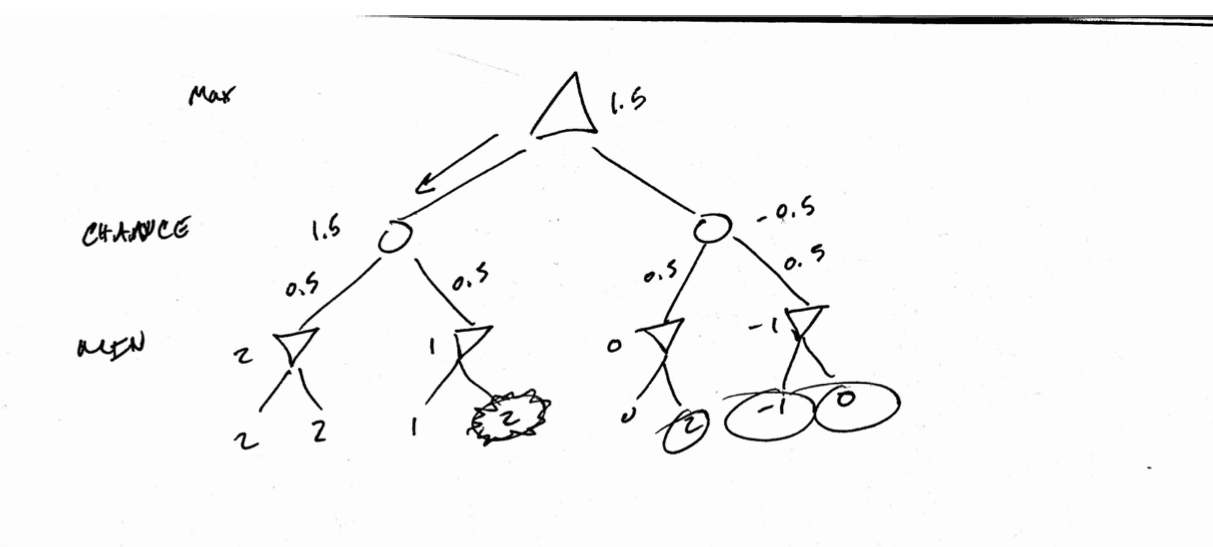 Max 1.5
CHANCE 1.5 -0.5
0.5 0.5 0.5 0.5
MIN 2 1 0 -1
2 2 1 2 0 2 -1 0